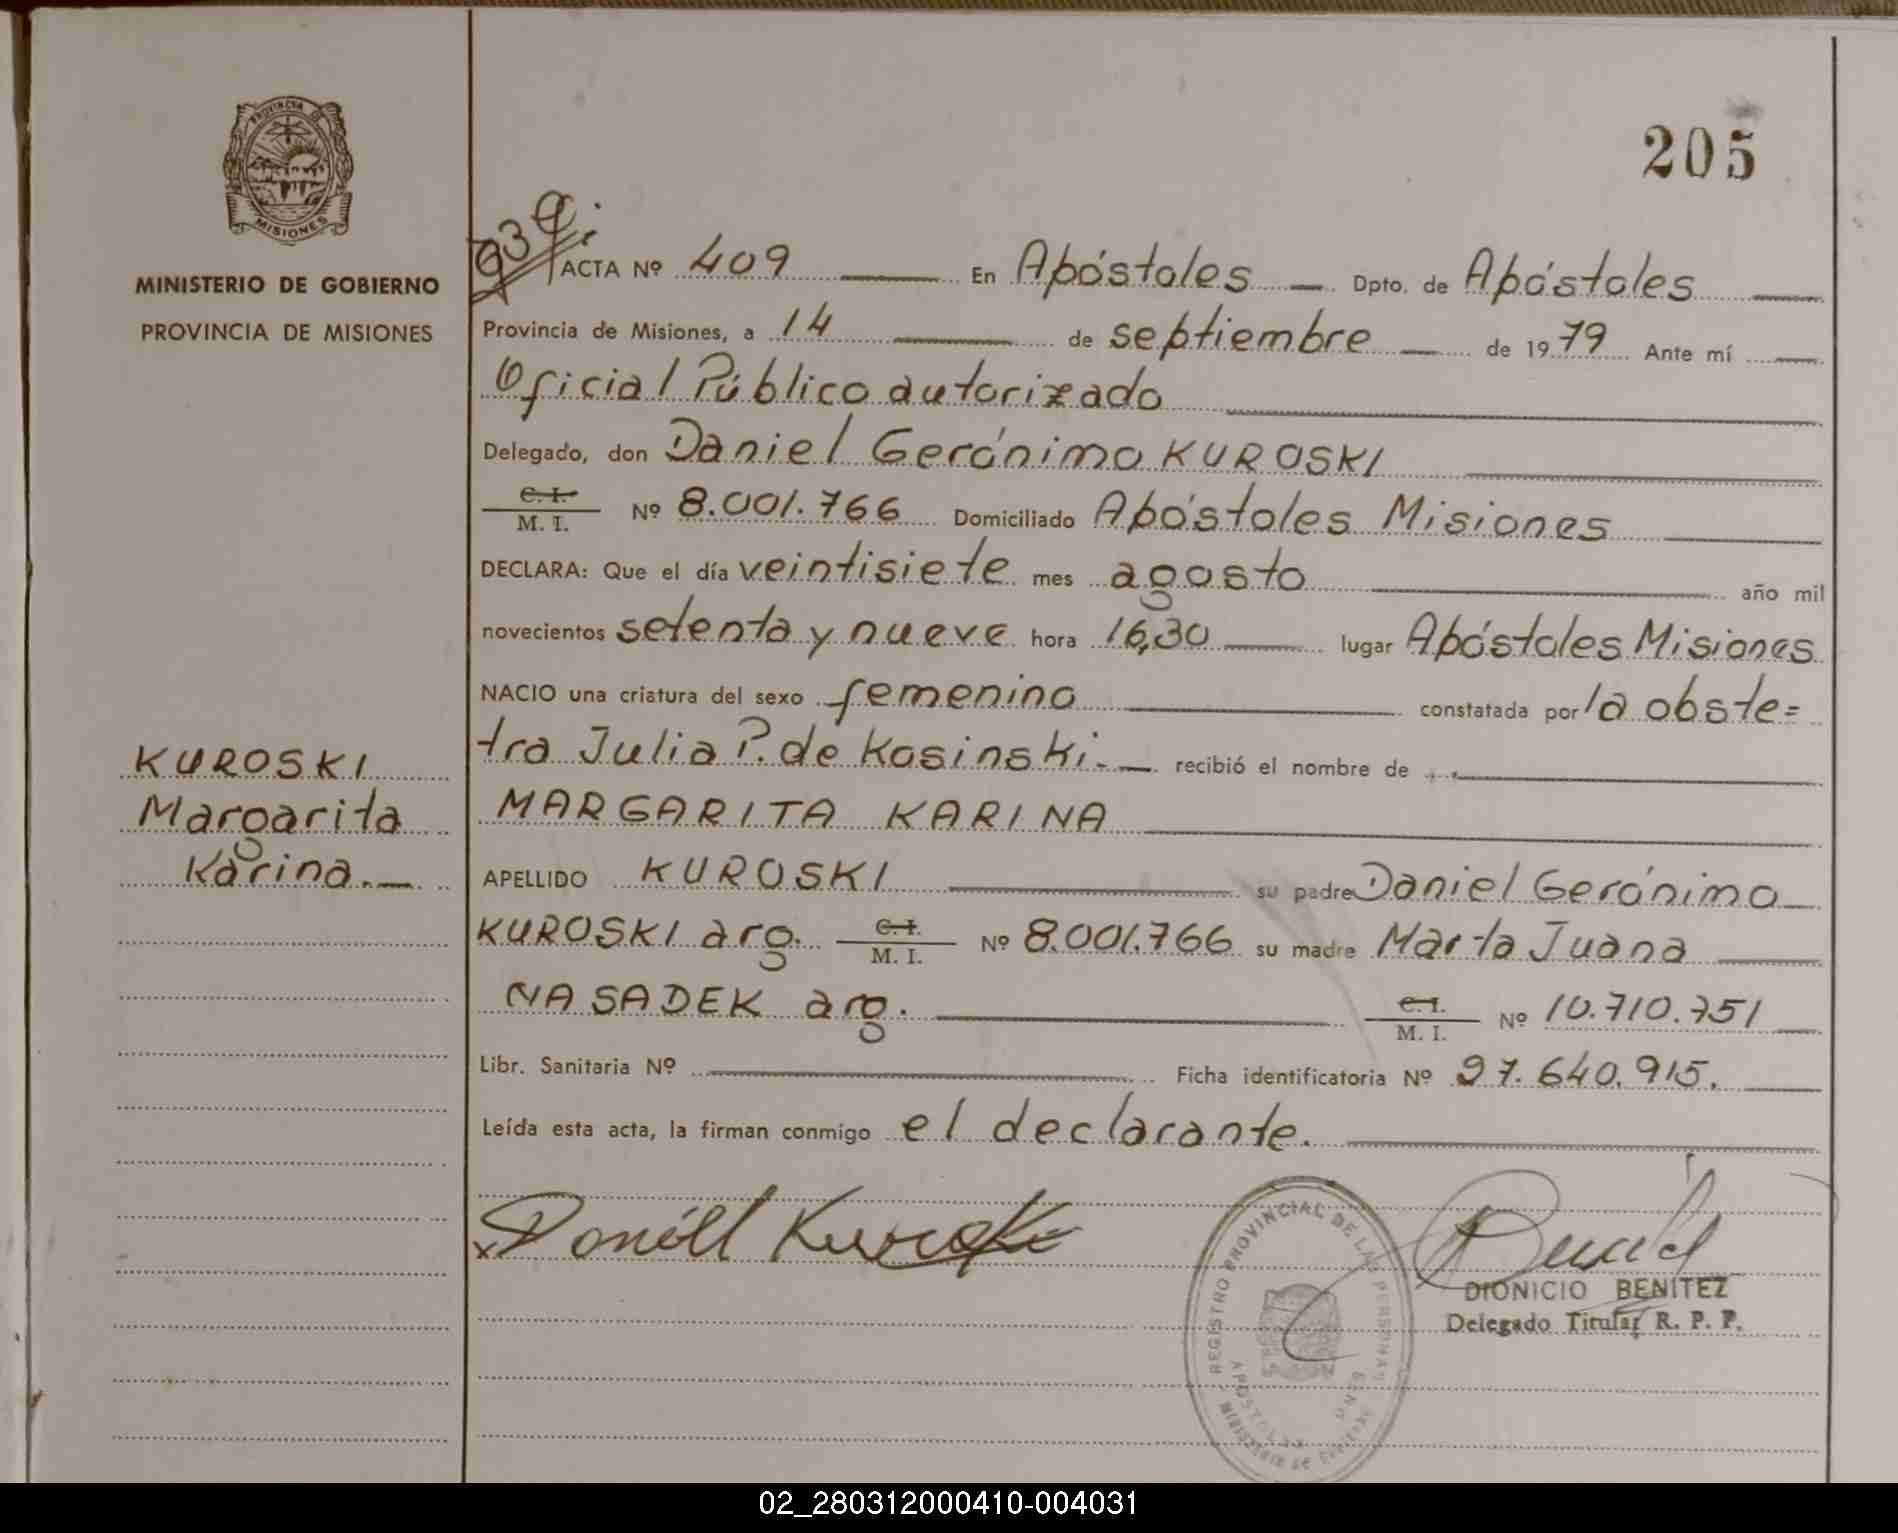 205
PROVINCIA DE
MISIONES
MINISTERIO DE GOBIERNO
PROVINCIA DE MISIONES
KUROSKI
Margarita
Karina.—
939
ACTA Nº 409 — En Apóstoles — Dpto. de Apóstoles —
Provincia de Misiones, a 14 — de septiembre — de 1979 Ante mí —
Oficial Público autorizado —
Delegado, don Daniel Gerónimo KUROSKI —
C. I.
M. I. Nº 8.001.766 Domiciliado Apóstoles Misiones —
DECLARA: Que el día veintisiete mes agosto — año mil
novecientos setenta y nueve hora 16,30 — lugar Apóstoles Misiones
NACIO una criatura del sexo femenino — constatada por la obste=
tra Julia P. de Kosinski.— recibió el nombre de —
MARGARITA KARINA —
APELLIDO KUROSKI — su padre Daniel Gerónimo —
KUROSKI arg. C. I. M. I. Nº 8.001.766 su madre Marta Juana —
NASADEK arg. — C. I. M. I. Nº 10.710.751 —
Libr. Sanitaria Nº — Ficha identificatoria Nº 27.640.915. —
Leída esta acta, la firman conmigo el declarante. —
REGISTRO PROVINCIAL DE LAS PERSONAS
APOSTOLES
MINISTERIO DE GOBIERNO
DIONICIO BENITEZ
Delegado Titular R. P. P.
02_280312000410-004031